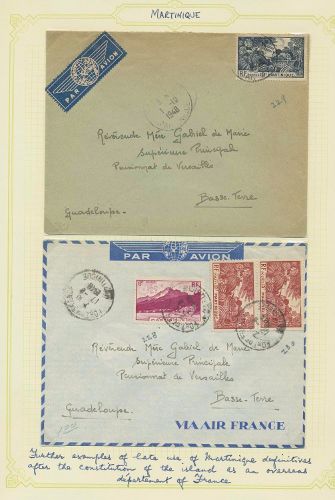 MARTINIQUE
PAR AVION
RF MARTINIQUE
1948
229
Révérende Mère Gabriel de Marie
Supérieure Principale
Pensionnat de Versailles
Basse-Terre
Guadeloupe.
PAR AVION
RF
RF
RF
MARTINIQUE
228
230
Révérende Mère Gabriel de Marie
Supérieure Principale
Pensionnat de Versailles
Basse-Terre
Guadeloupe.
VIA AIR FRANCE
Further examples of late use of Martinique definitives
after the constitution of the island as an overseas
département of France